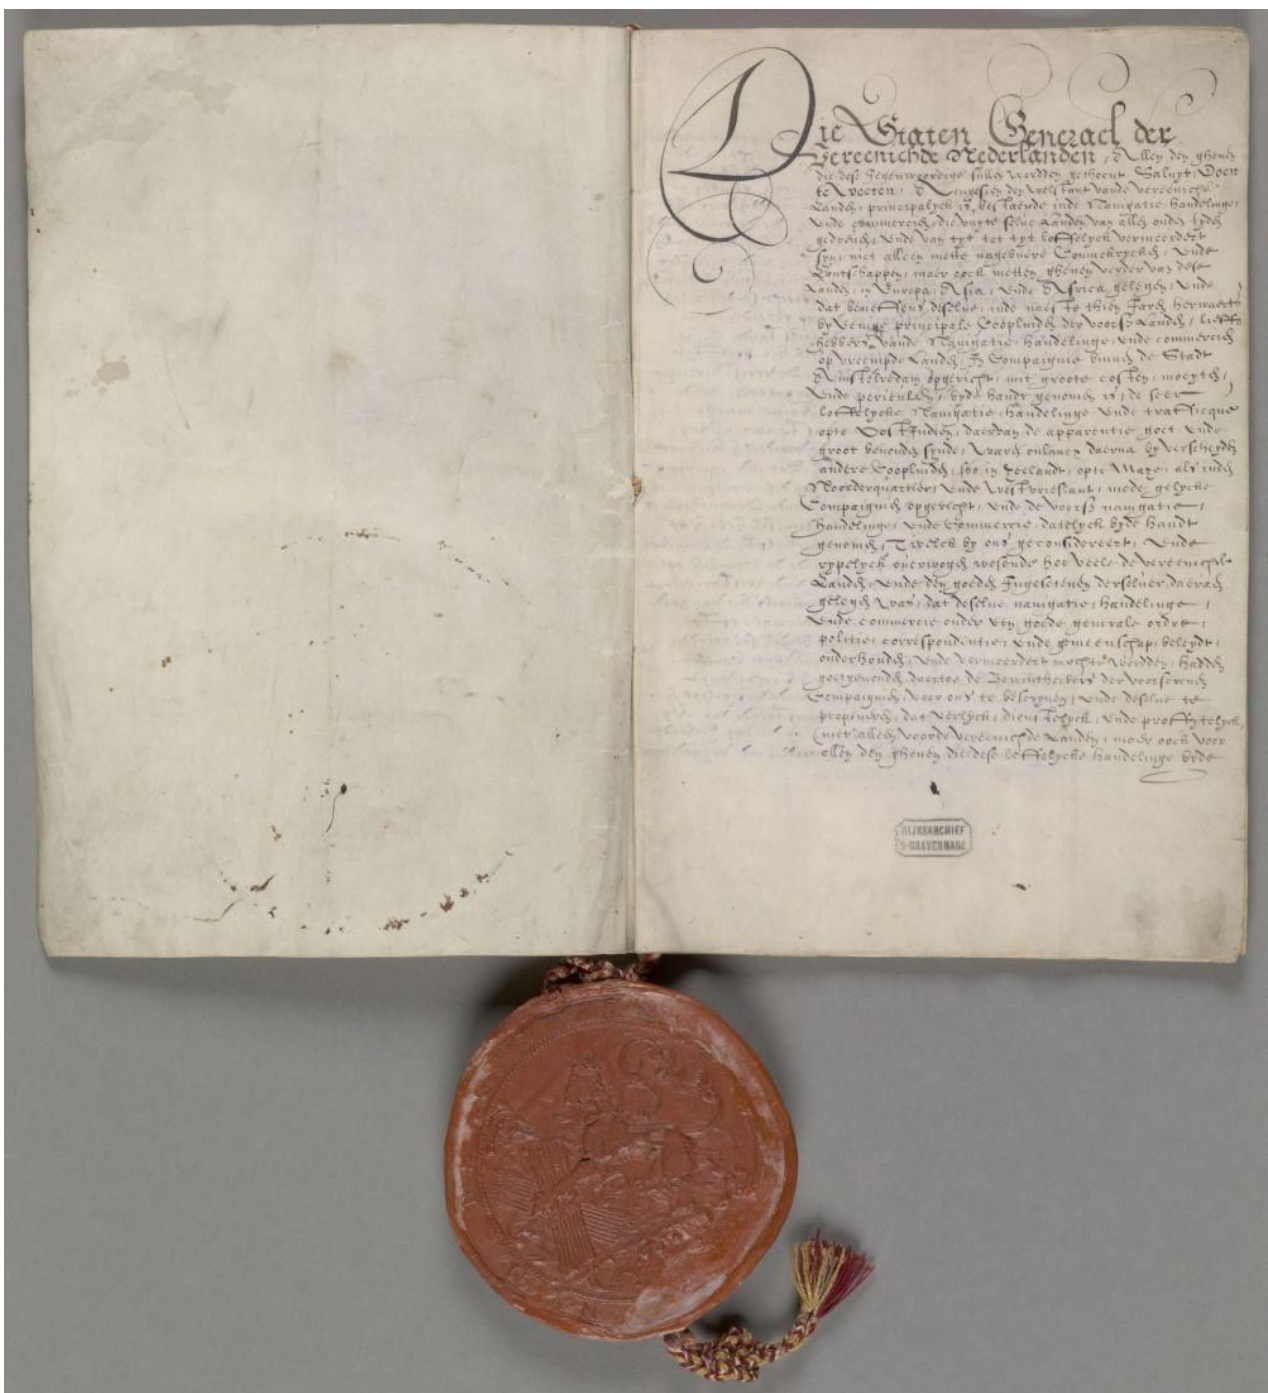 Die Staten Generael der
Vereenichde Nederlanden, Allen den ghenen
die dese Jegenwoordige sullen werdden gethoent Saluyt, Doen
te Weeten, Alsoo den welstant vande vereenichde
Landen, principalyck is bestaende inde Navigatie handelinge
ende commercien, die vuyte selve Landen van allen ouden tyden
gedreven, ende van tyt tot tyt loffelyck vermeerdert
syn, niet alleen mette nagebuere Conninckrycken, ende
Lantschappen, maer oock metten ghenen verder van dese
Landen, in Europa, Asia, ende Africa gelegen, ende
dat beneffens deselve, inde naeste thien Jaren herwaerts
by eenige principale Coopluiden der voorsz Landen, lieff-
hebbers vande Navigatie, handelinge, ende commercien
op vreempde Landen, In Compaignie binnen de Stadt
Amstelredam opgericht, mit groote costen, moeyten,
ende periculen, byde handt genomen is, de seer
loffelycke Navigatie, handelinge ende trafficque
opte Oost Indien, daervan de apparentie goet ende
groot bevonden synde, waren onlancx daerna by verscheyden
andere Coopluiden, soo in Zeelandt, opte Maze, als inden
Noorderquartier, ende Westvrieslant, mede gelycke
Compaignien opgericht, ende de voorsz navigatie,
handelinge, ende Commercie datelyck byde handt
genomen, Twelck by ons geconsidereert, ende
rypelyck overwogen wesende hoe veele de vereenichde
Landen, ende den goeden Ingesetenen derselver, daeraen
gelegen was, dat deselve navigatie, handelinge,
ende commercie onder een goede generale ordre,
politie, correspondentie, ende gemeenschap, beleydt,
onderhouden, ende vermeerdert mochte werdden, hadden
goetgevonden daertoe de Bewinthebbers der voorscreven
Compaignien, voor ons te bescryven, ende deselve te
proponeren, dat eerlyck, dienstelyck, ende proffytelyck,
niet alleen voorde vereenichde Landen, maer oock voor
allen den ghenen die dese loffelycke handelinge byde
RIJKSARCHIEF
S-GRAVENHAGE